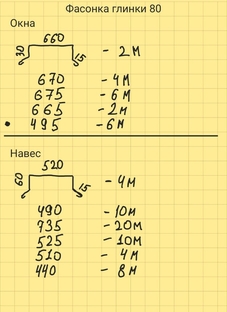 Фасонка глинки 80
Окна
660
30 15 - 2м
670 - 4м
675 - 6м
665 - 2м
• 495 - 6м
Навес
520
60 15 - 4м
490 - 10м
735 - 20м
525 - 10м
510 - 4м
440 - 8м